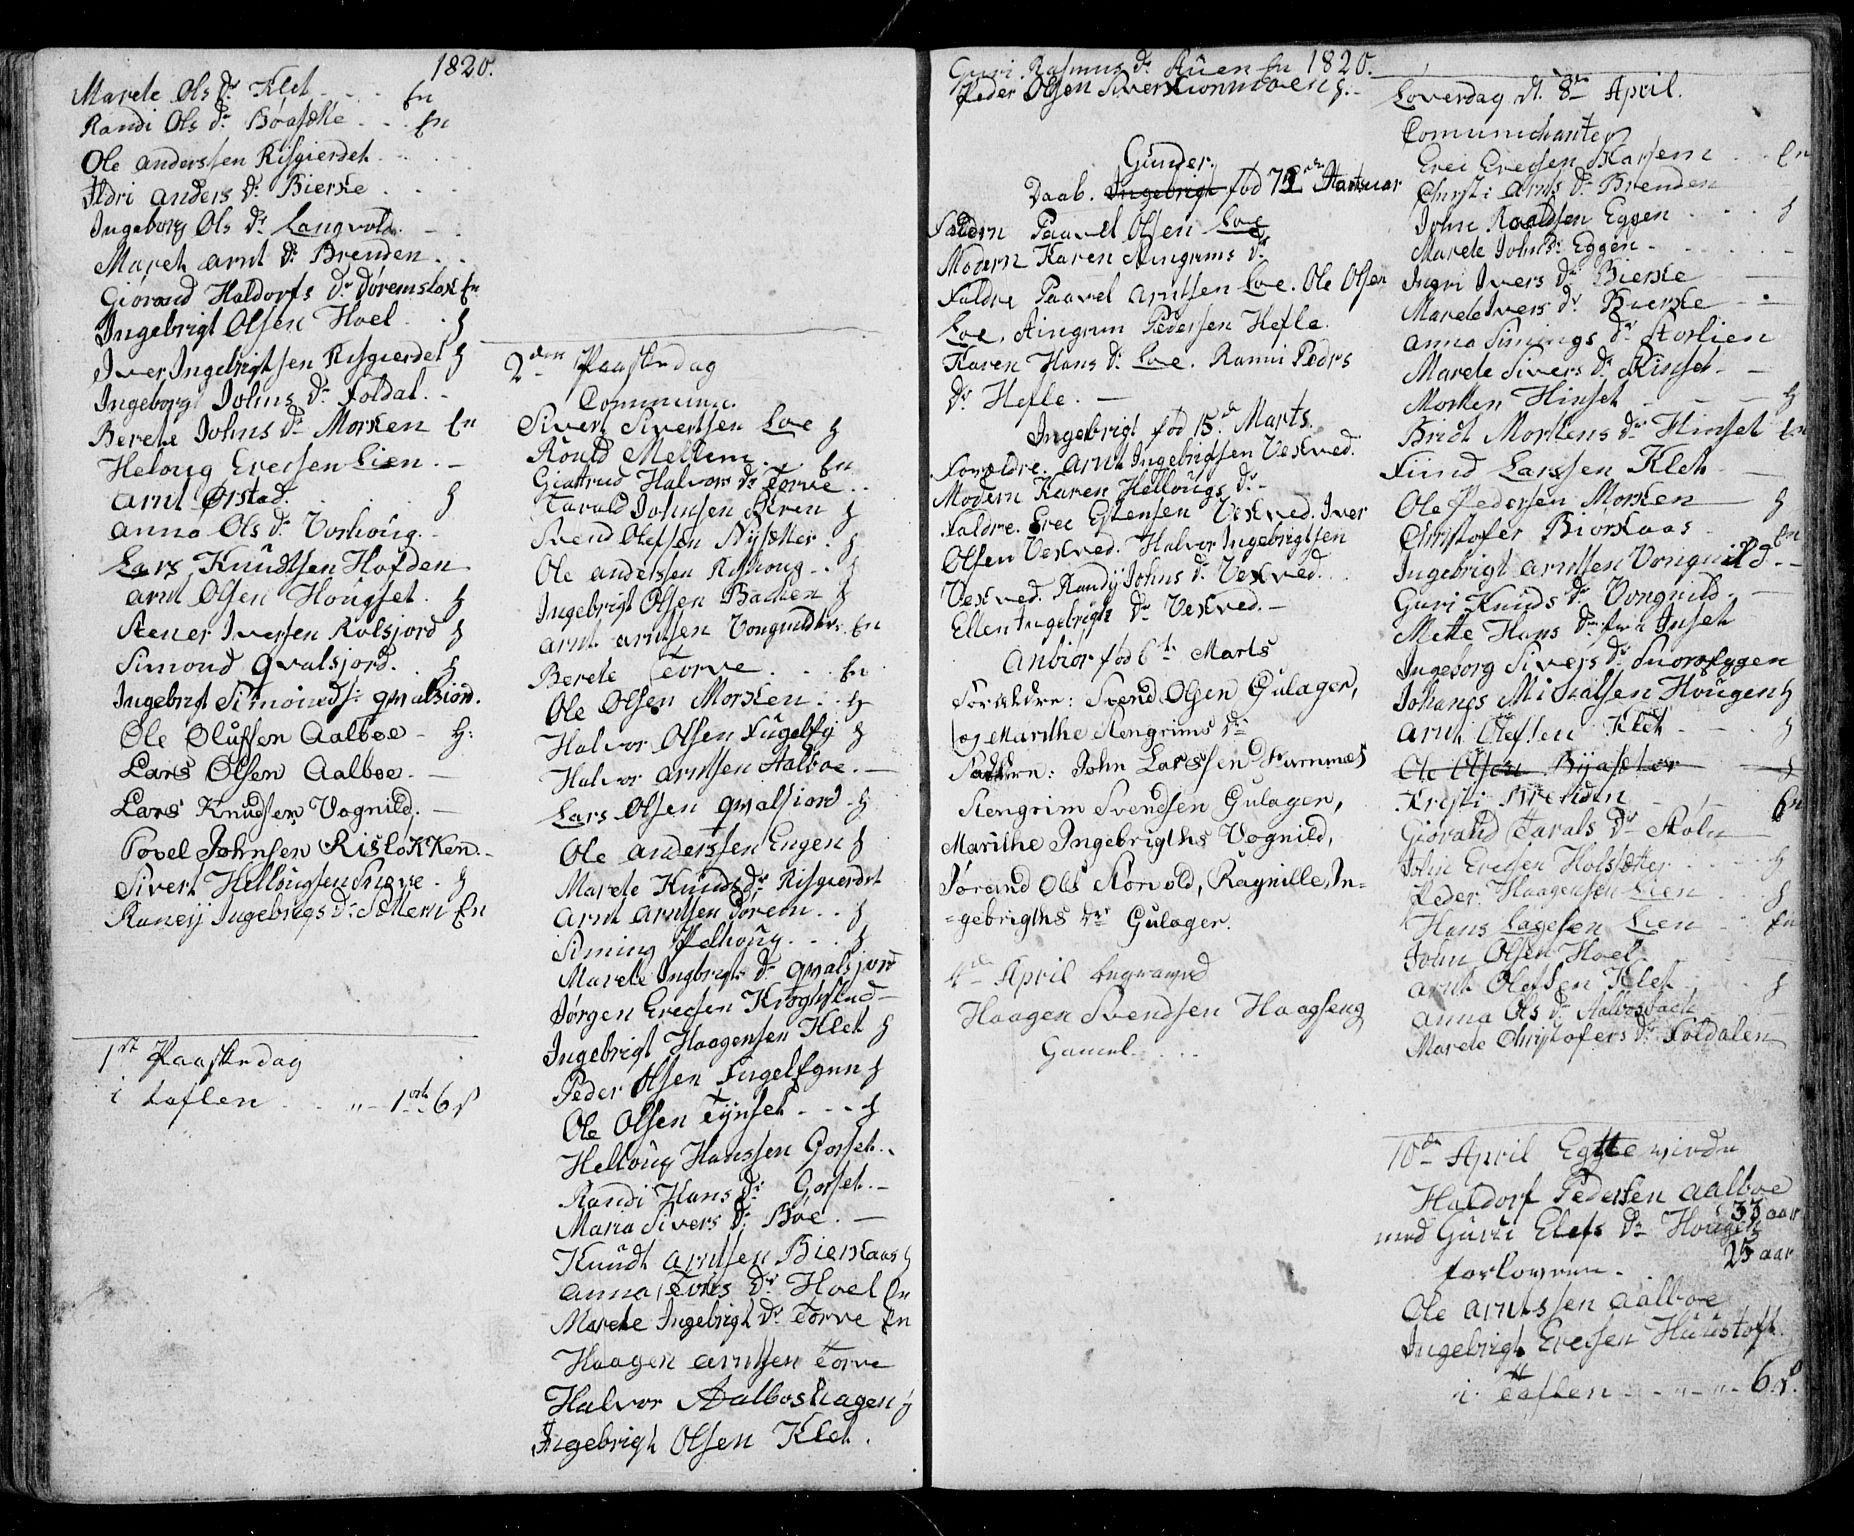 1820.
Marete Ols Dr Klet - - - En
Randi Ols Dr Bøasætte - - - En
Ole Anderssen Risgierdet - - -
Ildri Anders Dr Bierke - - -
Ingeborg Ols Dr Langvold - -
Maret Arnt Dr Brenden - -
Giörand Haldorfs Dr Døremslöst En
Ingebrigt Olsen Hoel - h
Iver Ingebrigtsen Risgierdet h
Ingeborg Johns Dr Foldal -
Berete Johns Dr Morken En
Heloug Erecsen Lien -
Arnt Ørstad - - - h
Anna Ols Dr Vorhoug -
Lars Knudtsen Hofden
Arnt Olsen Hougset - h
Stener Iversen Rolsjord h
Simond Qvalsjord - h
Ingebrigt Simonds: Qvalsiord.
Ole Olufsen Aalboe - H:
Lars Olsen Aalboe. -
Lars Knudsen Vognild. -
Povel Johnsen Risløkken -
Sivert Hellougsen Snøve - h
Raneij Ingebrigs Dr Sætern En
1st Paaskedag
i taflen - - " - 1 ort 6 s
2den Paaskedag
Commun:
Sivert Sivertsen Loe h
Rould Mellem - En
Giertrud Halvors Dr Torve - -
Tarald Johnsen Skren h
Svend Olefsen Nysætter - h
Ole Anderssen Rishoug - - h
Ingebrigt Olsen Backen h
Arnt Arntsen Vongnild - En
Berete Torve - - - En
Ole Olsen Morken - - h
Halvor Olsen Fugelfy h
Halvor Arntsen Aalboe - -
Lars Olsen Qvalsiord - h
Ole Anderssen Engen h
Marete Knuds Dr Risgierdet
Arnt Arntsen Dørem - - h
Siming Pelhoug - - - h
Marete Ingbrigts Dr Qvalsjord
Jørgen Erecsen Krogstad -
Ingebrigt Haagensen Klet h
Peder Olsen Fugelfgnn h
Ole Olsen Tynset - - - h
Helloug Hanssen Gorset - -
Randi Hans Dr Gorset -
Maria Sivers Dr Böe. -
Knudt Arntsen Bierkaas h
Anna Tores Dr Hoel En
Marete Ingebrigt Dr Torve En
Haagen Arntsen Torve
Halvor Aalboshagen h
Ingebrigt Olsen Klet.
Guri Rasmus Dr Stuen En 1820.
Peder Olsen Sverkionmoen h. -
Gunder.
Daab. Ingebrigt fød 7de Martsuar
Fadern Paavel Olsen Loe
Modern Karen Aingrims Dr
Faddre Paavel Arntsen Loe. Ole Olsen
Loe. Aingrim Pedersen Hefle.
Karen Hans Dr Loe. Ranni Peders
Dr Hefle. -
Ingebrigt fød 15d Marts.
Forældre. Arnt Ingebrigtsen Vekved.
Modern Karen Hellougs Dr -
Faldre. Erec Estensen Vekved. Iver
Olsen Vekved. Halvor Ingebrigtsen
Vekved. Randij Johns Dr Vekved. - -
Ellen Ingebrigts Dr Vekved. -
Anbiör fød 6te Marts
Forældre: Svend Olsen Gulager,
og Marithe Stengrims Dr
Faddern: John Larssen Furunæs
Stengrim Svendsen Gulager,
Marithe Ingebrigths Vognild,
Jørand Ols Storvold, Ragnille, In=
=gebrigths Dr Gulager.
4d April begravid
Haagen Svendsen Haagseng
Gamel. - - -
Løverdag d. 8de April.
Comunichanter
Erei Erecsen Skarsem - - En
Christi Arnts Dr Brenden
John Roaldsen Eggen - - - h
Marete Johns Dr Eggen - - -
Ingri Ivers Dr Bierke -
Marete Ivers Dr Bierke - -
Anna Simings Dr Storlien
Marete Sivers Dr Rinset - -
Morten Hinset - - - h
Bridt Mortens Dr Hinset En
Fiind Larssen Klet -
Ole Pedersen Morken - h
Christofer Biorkaas - En
Ingebrigt Arntsen Vongnild - -
Guri Knuds Dr Vongnild - -
Mette Hans Dr fra Inset
Ingeborg Sivers Dr Snorøggen
Johanes Mikalsen Hougen h
Arnt Olefsen Klet - - - h
Ole Olsen Byasæter - h
Kristi Brenden - - - En
Giörand Tarals Dr Stoln -
John Erecsen Holsætter - - - h
Peder Haagensen Lien - - h
Hans Lagesen Lien - - En
John Olsen Hoel
Arnt Olefsen Klet - - h
Anna Ols Dr Aalbosback
Marete Christofers Dr Foldalen
10de April Egteviede
Haldorf Pedersen Aalboe
33 aar
med Guru Elefs Dr Hougen
25 aar
forlovere -
Ole Arntssen Aalboe
Ingebrigt Erecsen Hunstoft
i Taflen - - " - " - 6 s.